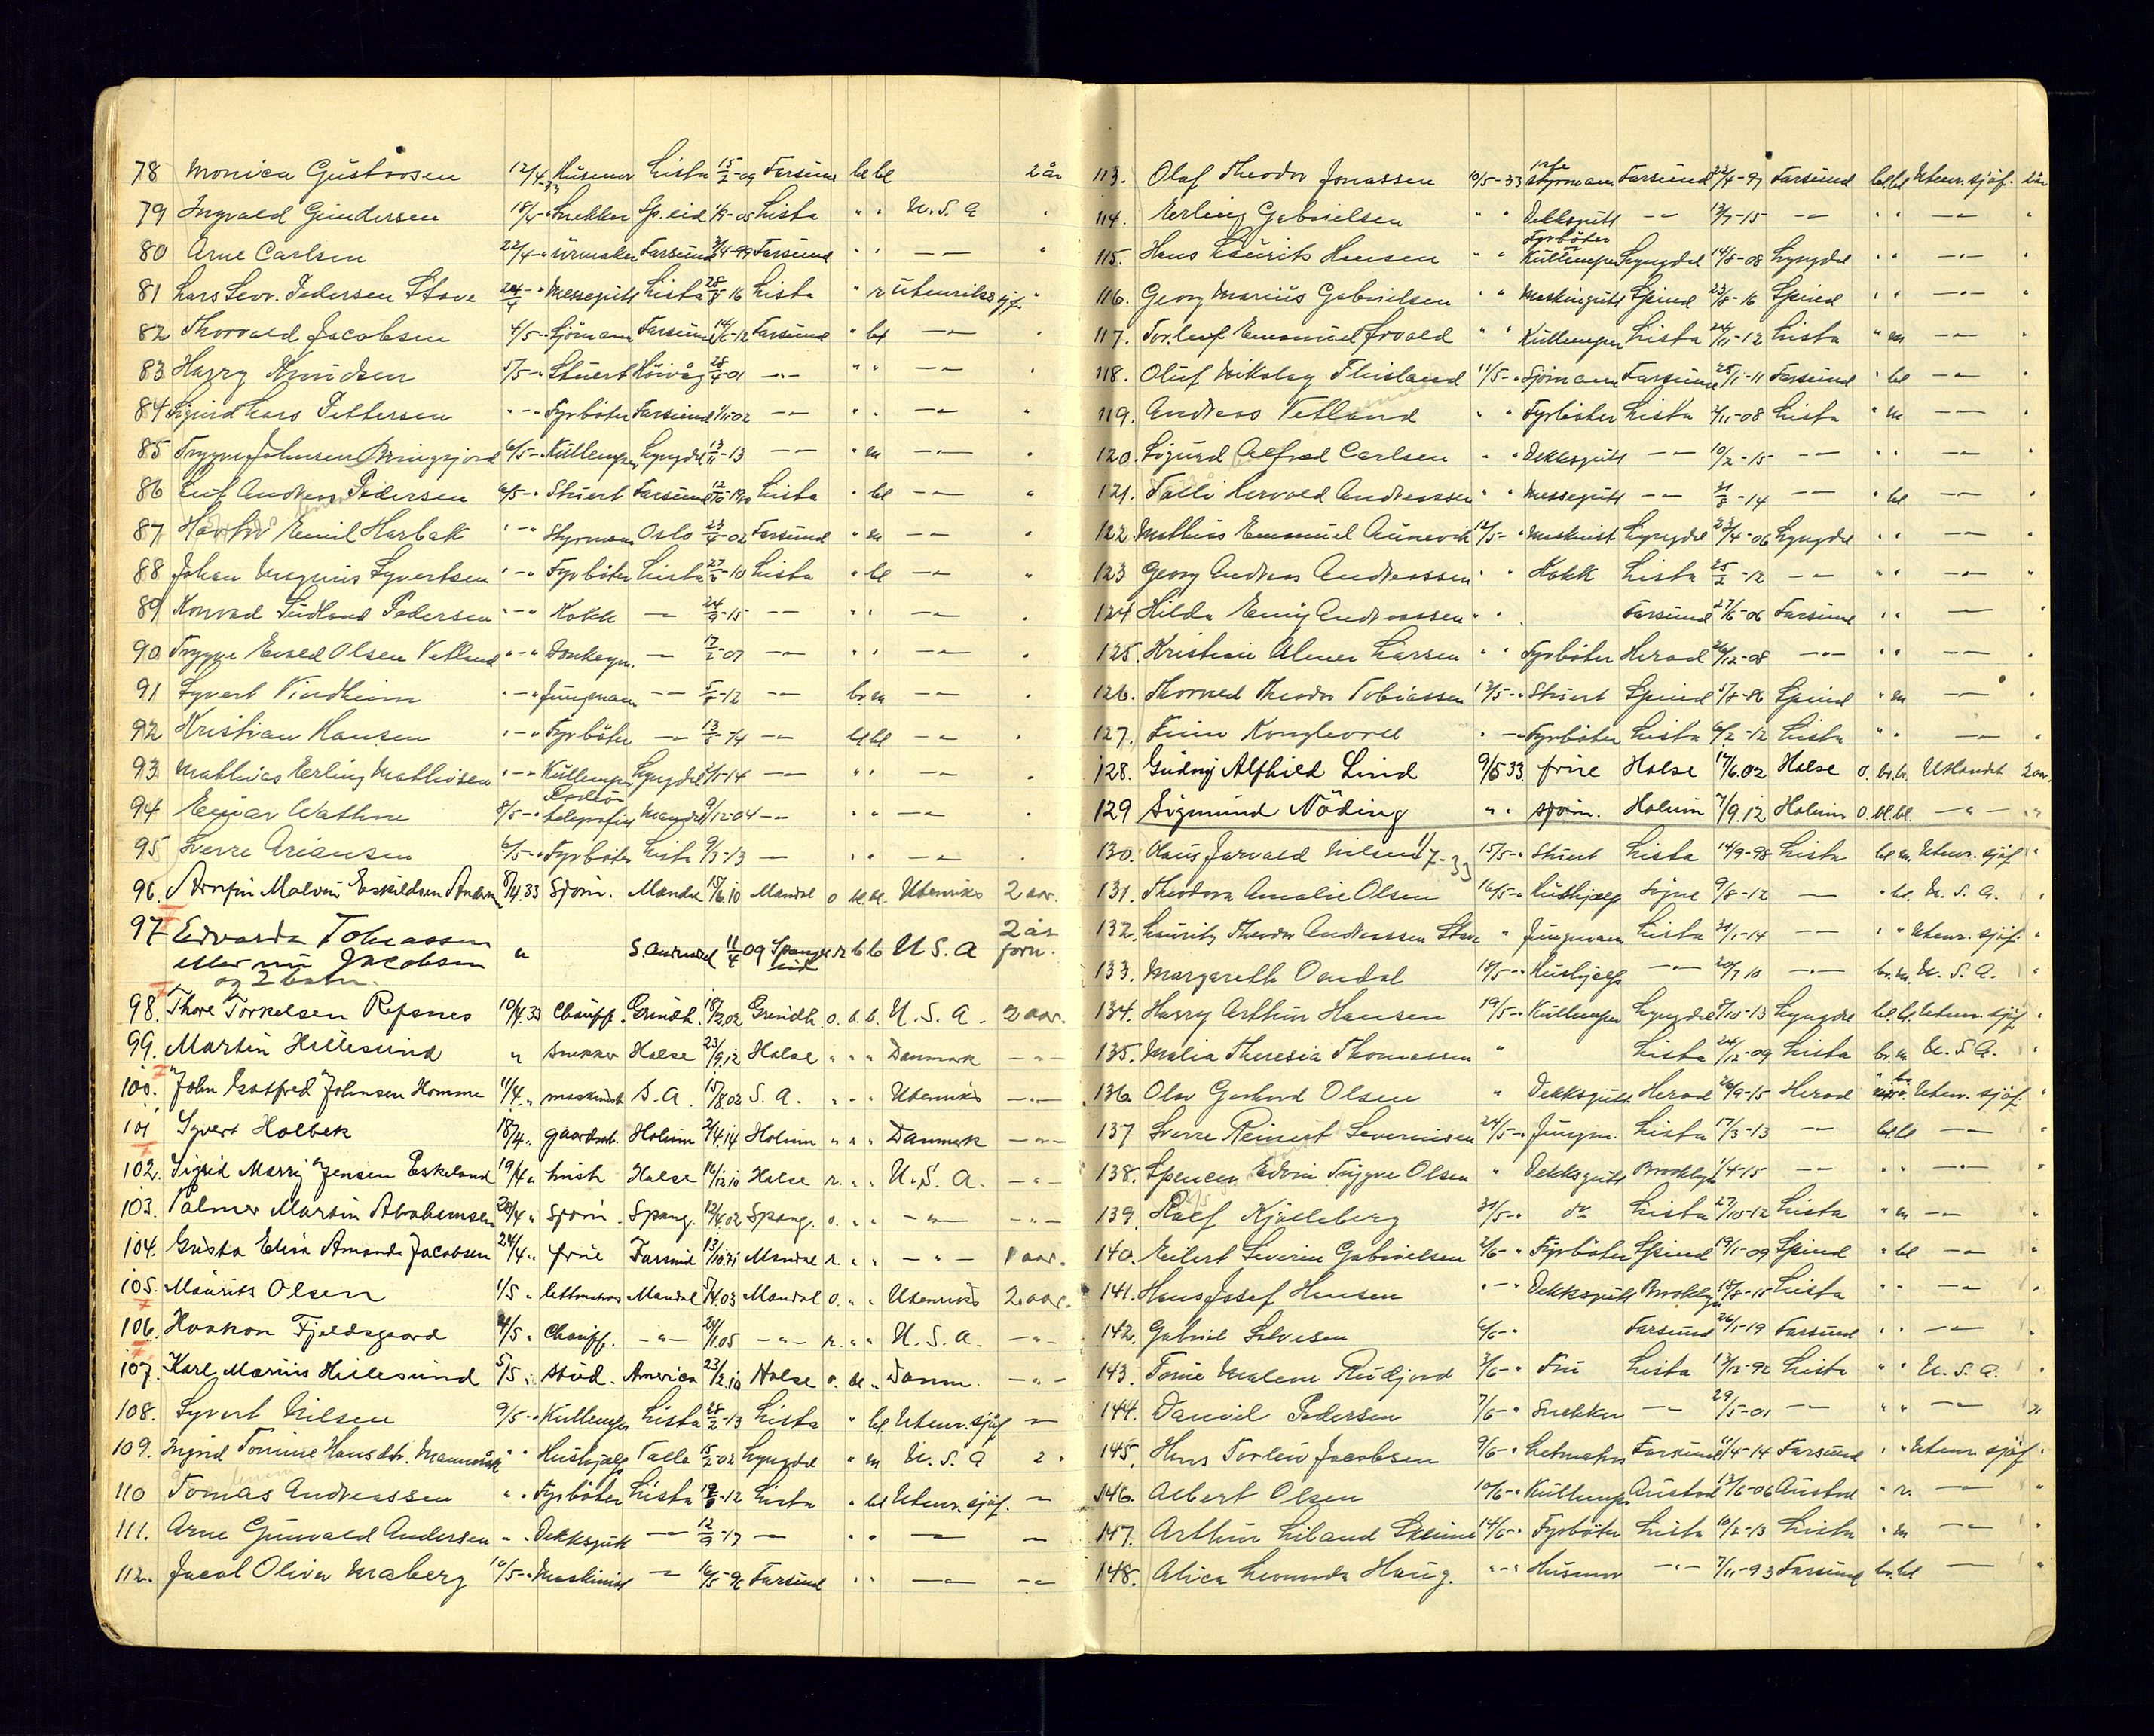 78 Monica Gustavsen 12/4-33 Husmor Lista 15/2-09 Farsund bl bl 2 år
79 Ingvald Gundersen 18/4-" Snekker Sp.eid -05 Lista " " U.S.A "
80 Arne Carlsen 22/4-" urmaker Farsund -99 Farsund " " — " — "
81 Lars Sevr. Pedersen Stave 24/4 -" Messegutt Lista 28/8 16 Lista " r utenriks sjf. "
82 Thorvald Jacobsen 4/5-" Sjömann Farsund 14/6-12 Farsund " bl — " — "
83 Harry Knudsen 5/5-" Stuert Höivåg 28/4-01 — " — " " — " — "
84 Sigurd Lars Pettersen " — " Fyrböter Farsund 1/11-02 — " — " " — " — "
85 Trygve Johnsen Bringsjord 6/5-" Kullemper Lyngdal 13/11-13 — " — " m — " — "
86 Leif Andreas Pedersen 6/5-" Stuert Farsund 12/10-1900 Lista " bl — " — "
87 Emil Harbak " — " Styrmann Oslo 23/4-02 Farsund " m — " — "
88 Johan Magnus Syvertsen " — " Fyrböter Lista -10 Lista " bl — " — "
89 Konrad Sudland Pedersen " — " Kokk — 24/9-15 — " — " " — " — "
90 Trygve Evald Olsen Vetland " — " Donkeym. — -07 — " — " " — " — "
91 Syvert Vindheim " — " Jungmann — " — -12 — " — br. m — " — "
92 Kristian Hansen " — " Fyrböter — " — -14 — " — bl bl — " — "
93 Mathias Erling Mathisen " — " Kullemper Lyngdal -14 — " — " " — " — "
94 Einar Wathne 8/5-" Radio telegrafist Mandal 9/12-04 — " — " " — " — "
95 Sverre Ariansen 6/5-" Fyrböter Lista 9/3-13 — " " — " — "
96. Arnfin Malvin Eskildsen 8/4.33 Sjöm. Mandal 15/6.10 Mandal o bl. bl. Utenriks 2 aar.
97 Edvarda Tobiassen " S. Audnedal 11/4 09 Spangereid r b b U S A 2 år forn.
eller nu Jacobsen
og 2 barn.
98. Thore Torkelsen Refsnes 10/4.33 Chauff. Grindh. 18/2.02 Grindh o. b. b. U. S. A. 2 aar.
99. Martin Hillesund " snekker Halse 23/9.12 Halse " " " Danmark — " —
100. John Gotfred Johnsen Homme 11/4. " maskinist S. A. 15/8.02 S. A. " " " Utenriks — " —
101 Syvert Holbek 18/4. " gaardsarb. Holum 2/4.14 Holum " " " Danmark — " —
102. Sigrid Marry Jensen Eskeland 19/4 " hush Halse 16/12.10 Halse r. " " U. S. A. — " —
103. Palmer Martin Abrahamsen 20/4 " Sjöm. Spang. 12/4.02 Spang. o. " " — " — — " —
104. Gusta Elisa Amanda Jacobsen 24/4 " frue Farsund 13/10.71 Mandal r. " " — " — 1 aar.
105. Mauritz Olsen 1/5 " lettmatros Mandal 5/4.03 Mandal o. " " Utenriks 2 aar.
106. Haakon Fjeldsgaard 4/5 " Chauff. — " — 21/1.05 — " — r. " " U. S. A. — " —
107. Karl Marius Hillesund 5/5 " stud. America 23/2.10 Halse o. bl " Danm. — " —
108. Syvert Nilsen 9/5-" Kullemper Lista 28/2-13 Lista " bl Utenr. sjöf — " —
109. Ingrid Tomine Hansdtr. " " Hushjelp 15/2-02 Lyngdal " m U. S. A 2 "
110 Tomas Andreassen " " Fyrböter Lista -12 Lista " bl Utenr. sjöf. —
111. Arne Gunvald Andersen " " Dekksgutt — " — 12/9-17 — " — " " — " — —
112. Jacob Oliver Maberg 10/5-" Maskinist — 16/5-96 Farsund " " — " — — " —
113. Olaf Theodor Jonassen 10/5-33 1ste styrmann Farsund 22/4-97 Farsund bl. bl Utenr. sjöf. 2 år
114. Erling Gabrielsen " " Dekksgutt — " — 13/7-15 — " — " " — " — "
115. Hans Laurits Hansen " " Fyrböter Kullemper Lyngdal 14/8-08 Lyngdal " " — " — "
116. Georg Marius Gabrielsen " " Maskingutt Spind 23/8-16 Spind " " — " — "
117. Torleif Emanuel Frvold " " Kullemper Lista 24/11-12 Lista " m — " — "
118. Oluf Nikolay Thisland 11/5-" Sjömann Farsund 25/1-11 Farsund " bl — " — "
119. Andreas Vetland " " Fyrböter Lista 2/11-08 Lista " m — " — "
120. Sigurd Alfred Carlsen " " Dekksgutt — " — 10/2-15 — " — " " — " — "
121. Talli Hervald Andreassen " " Messegutt — " — 31/8-14 — " — " bl — " — "
122. Mathias Emanuel Aunevik 12/5-" Maskinist Lyngdal 23/4-06 Lyngdal " " — " — "
123 Georg Andreas Andreassen " " Kokk Lista 25/2-12 — " — " " — " — "
124 Hilda Emig Andreassen " " Farsund 27/6-06 Farsund " " — "
125. Kristian Elmer Larsen " " Fyrböter Herad 26/12-08 — " — " " — " — "
126. Thorvald Theodor Tobiassen 12/5-" Stuert Spind 5/8-86 Spind " m — " — "
127. Finn Konglevoll " — " Fyrböter Lista 6/2-12 Lista " " — " — "
128. Gudny Alfhild Lind 9/5 33. frue Halse 17/6.02 Halse o. br. b. Utlandet 2 aar.
129 Sigmund Nöding " " sjöm. Holum 7/9.12 Holum o. bl. bl. — " — " "
130. Olaus Jarvald Nilsen 1/7-33 15/5-" Stuert Lista 14/9-98 Lista bl m. Utenr. sjöf "
131. Theodora Amalie Olsen 16/5-" Hushjelp Sögne 9/8-12 — " bl. U. S. A. "
132. Lauritz Theodor Andreassen Stave " Jungmann Lista 21/1-14 — " — " " Utenr. sjöf. "
133. Margareth Omdal 18/5-" Hushjelp — " — 20/7 10 — " — br. m. U. S. A. "
134. Harry Arthur Hansen 19/5-" Kullemper Lyngdal -13 Lyngdal bl. bl. Utenr. sjöf "
135. Malia Theresia Thomassen " Lista 24/12-09 Lista br. m U. S. A. "
136. Olav Gerhard Olsen " Dekksgutt Herad 26/9-15 Herad Utenr. sjöf. "
137 Sverre Reinert Severinsen 24/5-" Jungm. Lista 17/3-13 — " — bl. bl — " — "
138. Spencer Edvin Trygve Olsen " Dekksgutt Brooklyn 1/4-15 — " — " " — " — "
139. Ralf Kjölleberg 31/5-" do Lista 27/10-12 Lista " m — " — "
140. Eilert Severin Gabrielsen 2/6-" Fyrböter Spind 19/1-09 Spind " bl — " — "
141. Hans Josef Hansen " — " Dekksgutt Brooklyn 18/8-15 Lista " " — " — "
142. Gabriel Salvesen 6/6-" Farsund 26/1-19 Farsund " " — " — "
143. Tomine Malene Rudjord 3/6-" Fru Lista 13/12-92 Lista " " U. S. A. "
144. Danvil Pedersen 7/6-" Snekker — " — 29/5-01 — " — " " — " — "
145. Hans Torleiv Jacobsen 9/6-" Letmatros Farsund -14 Farsund " " Utenr. sjöf. "
146. Albert Olsen 10/6-" Kullemper Austad 13/6-06 Austad " r. — " — "
147. Arthur Liland Skeime 14/6-" Fyrböter Lista 10/2-13 Lista " m — " — "
148. Alica Leonarda Haug. " — " Husmor — " — 7/11-93 Farsund br. bl — "